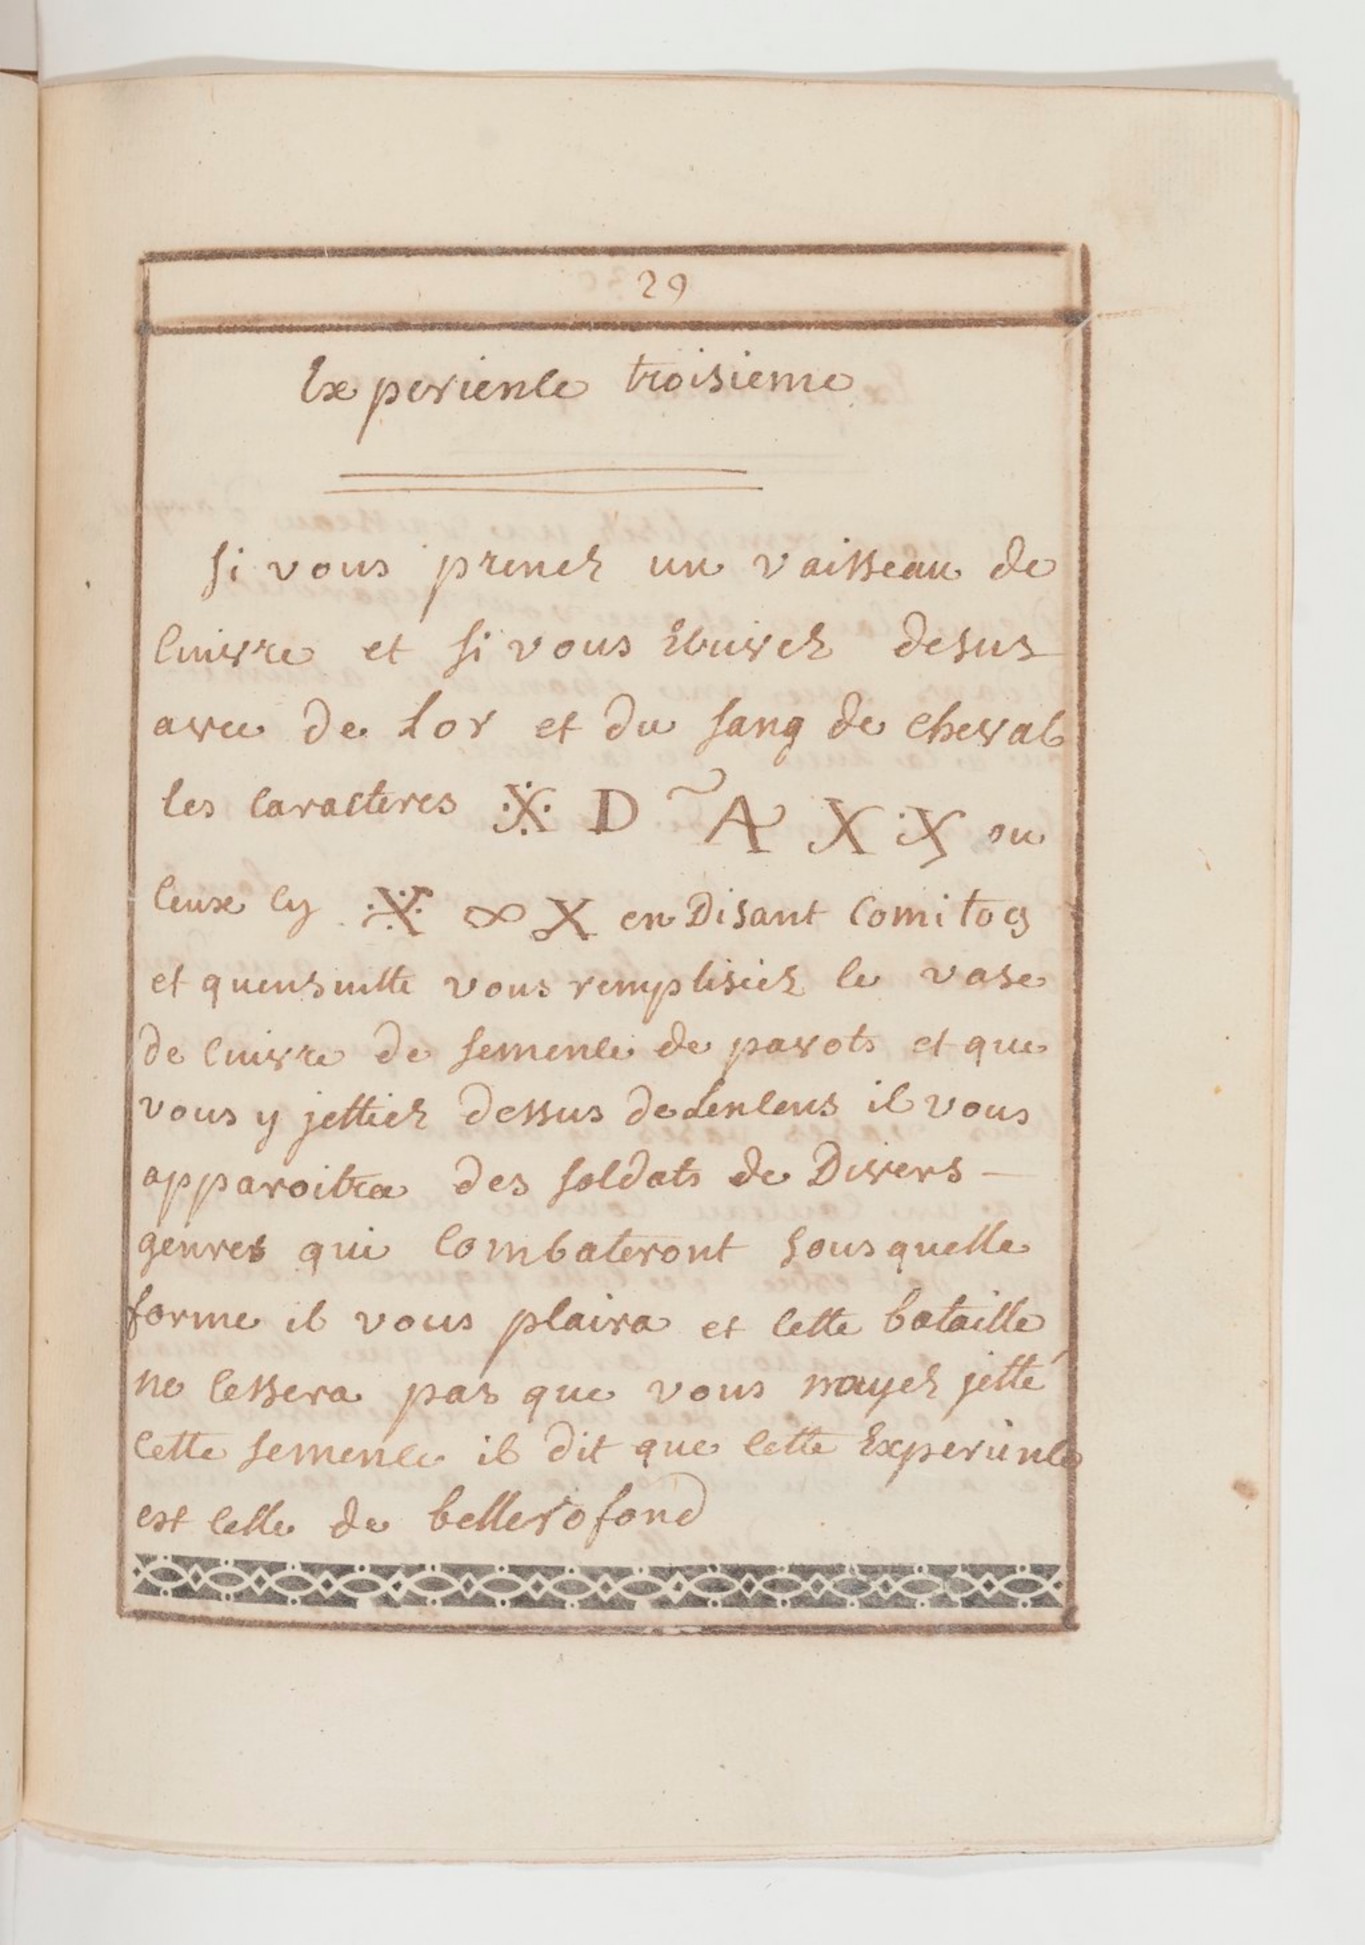 29
Experience troisieme
Si vous prenez un vaisseau de
cuivre et si vous Ecrivez desus
avec de lor et du sang de cheval
les caracteres ※ D ~A X X ou
ceux cy ※ ∞ X en Disant Comitoes
et quensuitte vous remplisiez le vase
de cuivre de semence de pavots et que
vous y jettiez dessus de Lencens il vous
apparoitra des soldats de Divers —
genres qui combateront sous quelle
forme il vous plaira et cette bataille
ne cessera pas que vous nayez jetté
cette semence il dit que cette Experience
est celle de bellerofond